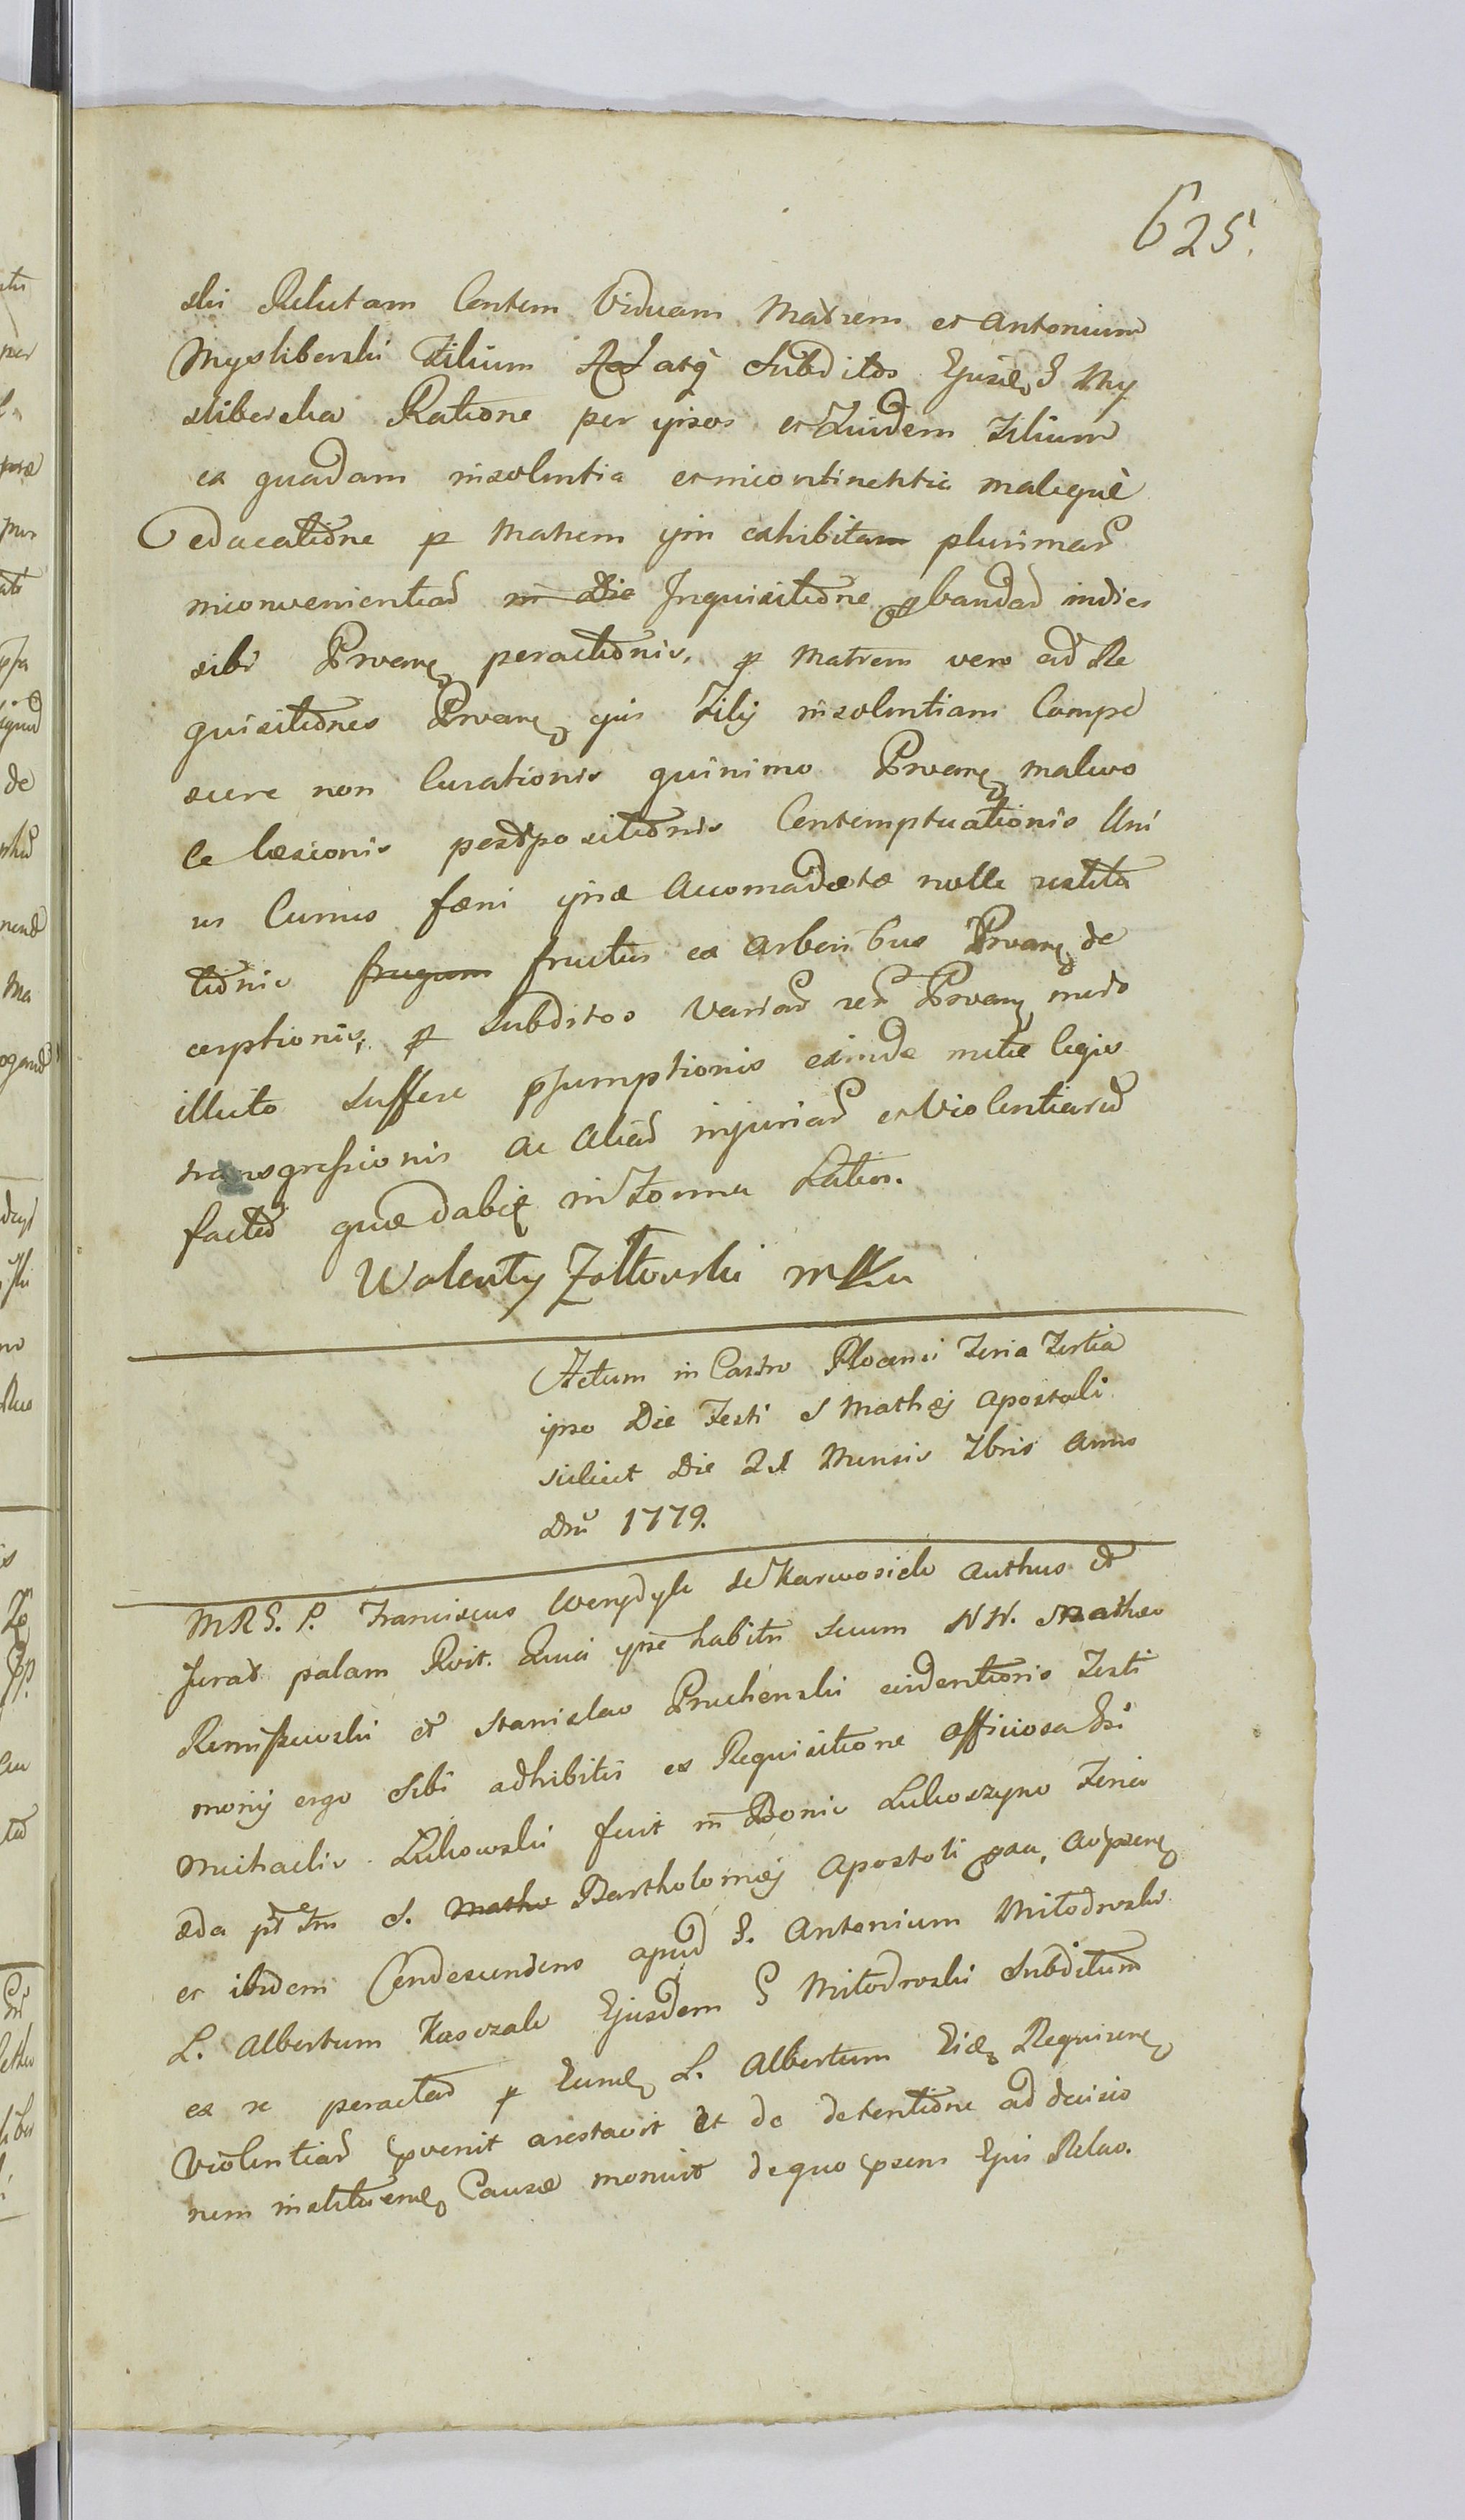 625.
ski Relictam Contem Viduam Matrem et Antonium
Mysliberski Filium atq Subditos Ejusd G My
sliberska Ratione per ipsos et quidem Filium
ex quadam insolentia et incontinentia maleque
educatione p Matrem ipsi exhibitam plurimar
inconvenientiar in Die Inquisitione pbandar indies
sibi Prvane peractionis, p Matrem vero ad Re
quisitiones Prvane ejus Filij insolentiam Compe
scere non Curationis quinimo Prvane malivo
ce læsionis postpositionis Contemptuationis Uni
us Currus fæni ipsæ Accomadatæ nolle restitu
tionis frugum fructus ex Arboribus Prvane de
cerptionis; p Subditos Variar rer Prvane modo
illicito Suffere psumptionis exinde mutæ legis
transgressionis ac Aliar injuriar et Violentiarum
factar quæ dabit in Termu Latior.
Walenty Zołtowski mKu
Actum in Castro Plocensi Feria Tertia
ipso Die Festi S Mathæj Apostoli
scilicet Die 21 Mensis 7bris Anno
Dni 1779.
MRG. P. Franciscus Wengdyk de Karwosieki Authus et
Jurat palam Rvit. Quia ipse habitis Secum NN. Matheo
Remiszewski et Stanislao Pruchenski evidentioris Testi
monij ergo Sibi adhibitis ex Requisitione officiosa Gsi
Michaelis Łukowski fuit in Bonis Lukoszyno Feria
2da pt Fm S. Matho Bartholomæj Apostoli pxa, Acpsene
et ibidem Condescendens apud G. Antonium Miłodroski
L. Albertum Kaszczak Ejusdem G Miłodroski Subditum
ex re peractar p Eund L. Albertum Eid Requirene
Violentiar pvenit arestavit et de detentione ad decisio
nem instituend Causæ monuit de quo psens Ejus Relao.